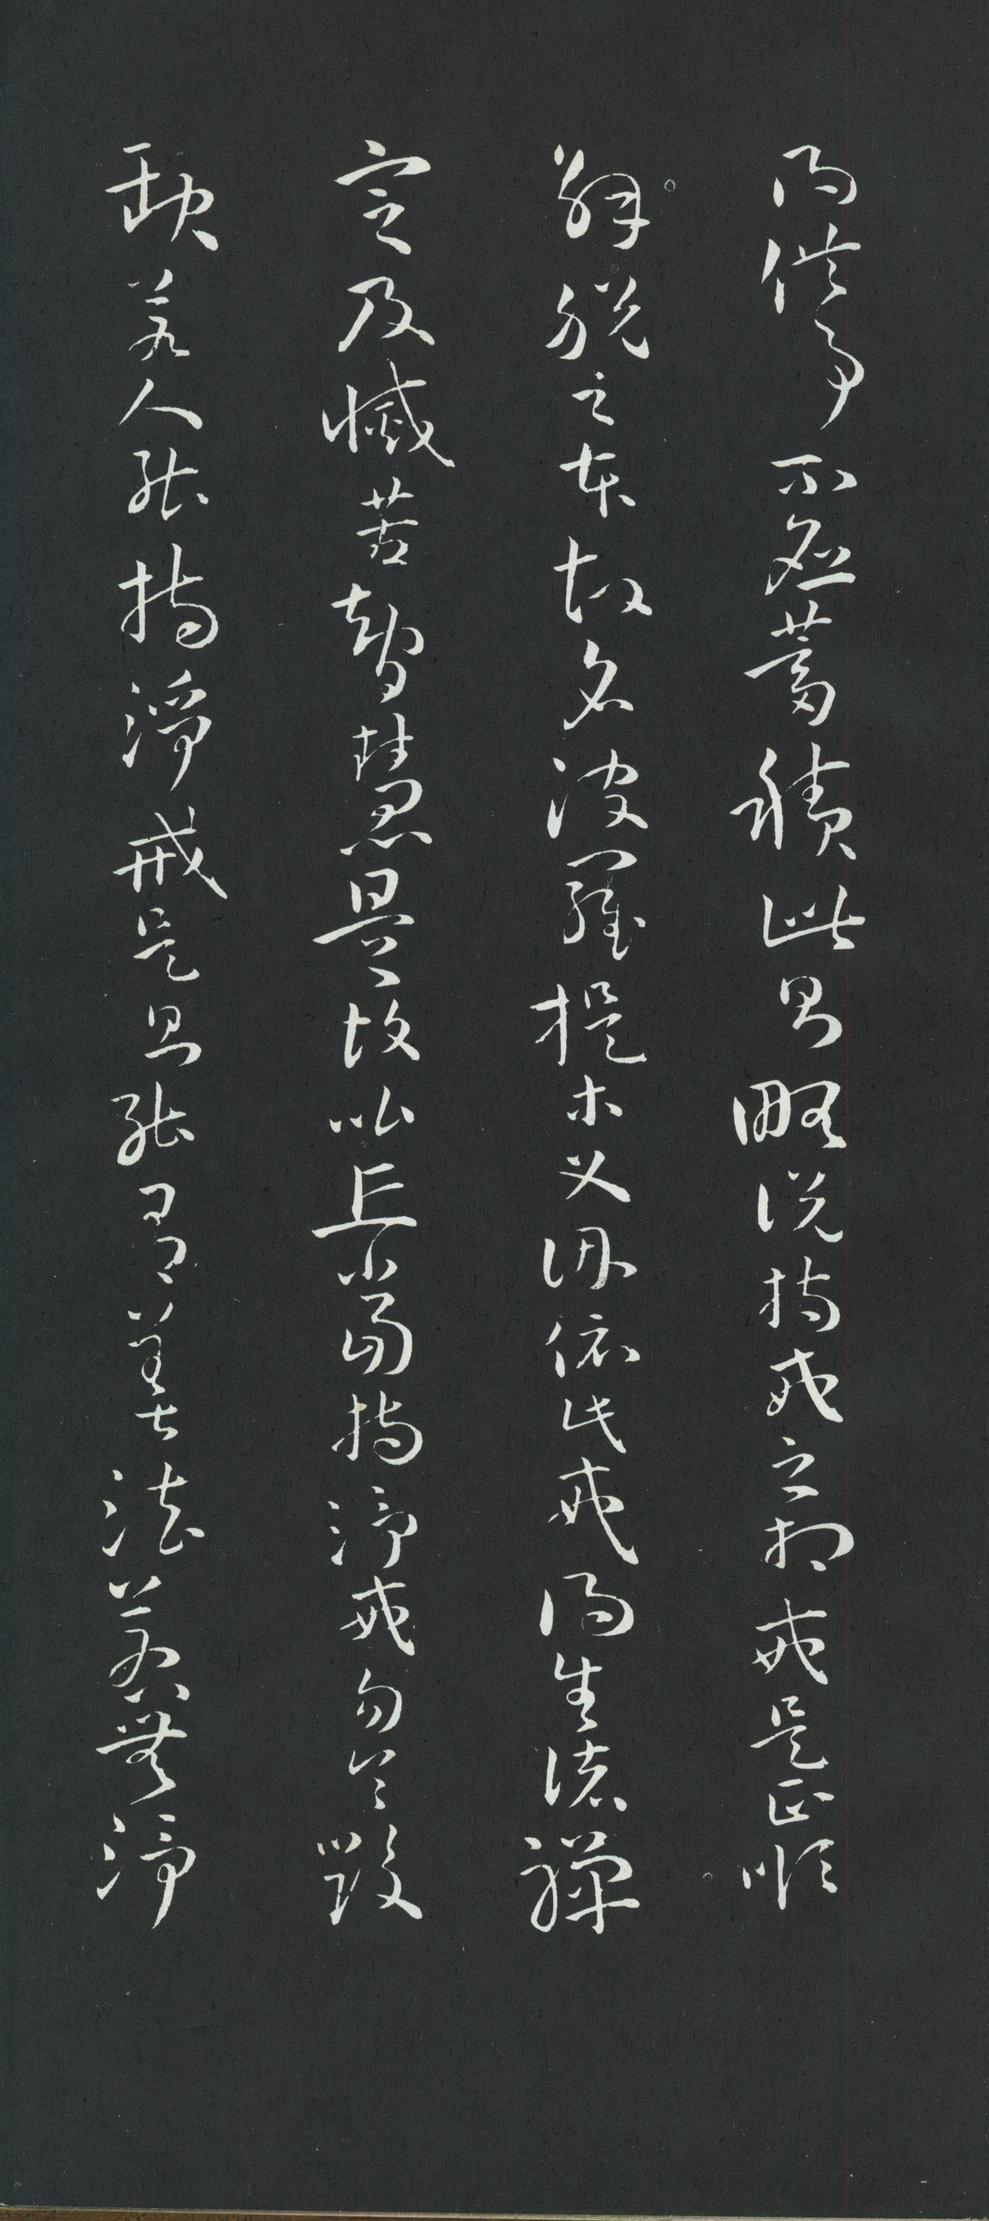 得供事不應蓄積此則略說持戒之相戒是正順
解脫之本故名波羅提木叉因依此戒得生諸禪
定及滅苦智慧是故比丘當持淨戒勿令毀
缺若人能持淨戒是則能有善法若無淨